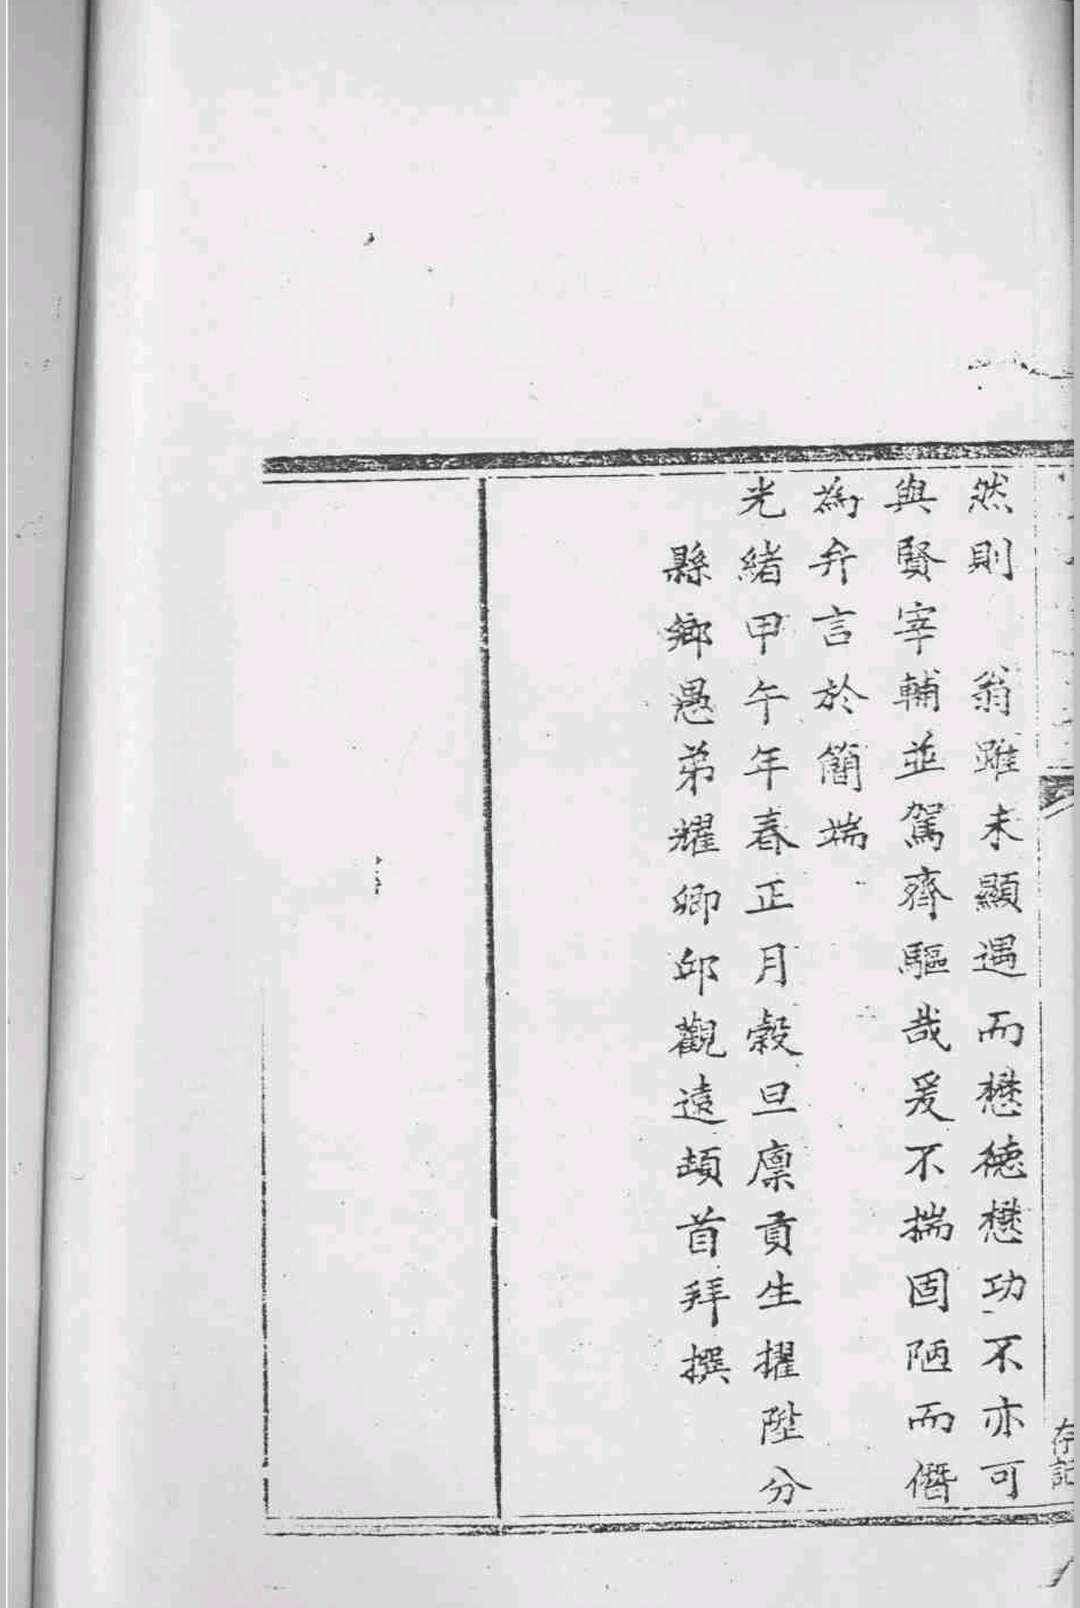 存記
然則　翁雖未顯遇而懋德懋功不亦可
與賢宰輔並駕齊驅哉爰不揣固陋而僭
為弁言於簡端
光緒甲午年春正月穀旦廩貢生擢陞分
縣鄉愚弟耀卿邱觀遠頓首拜撰